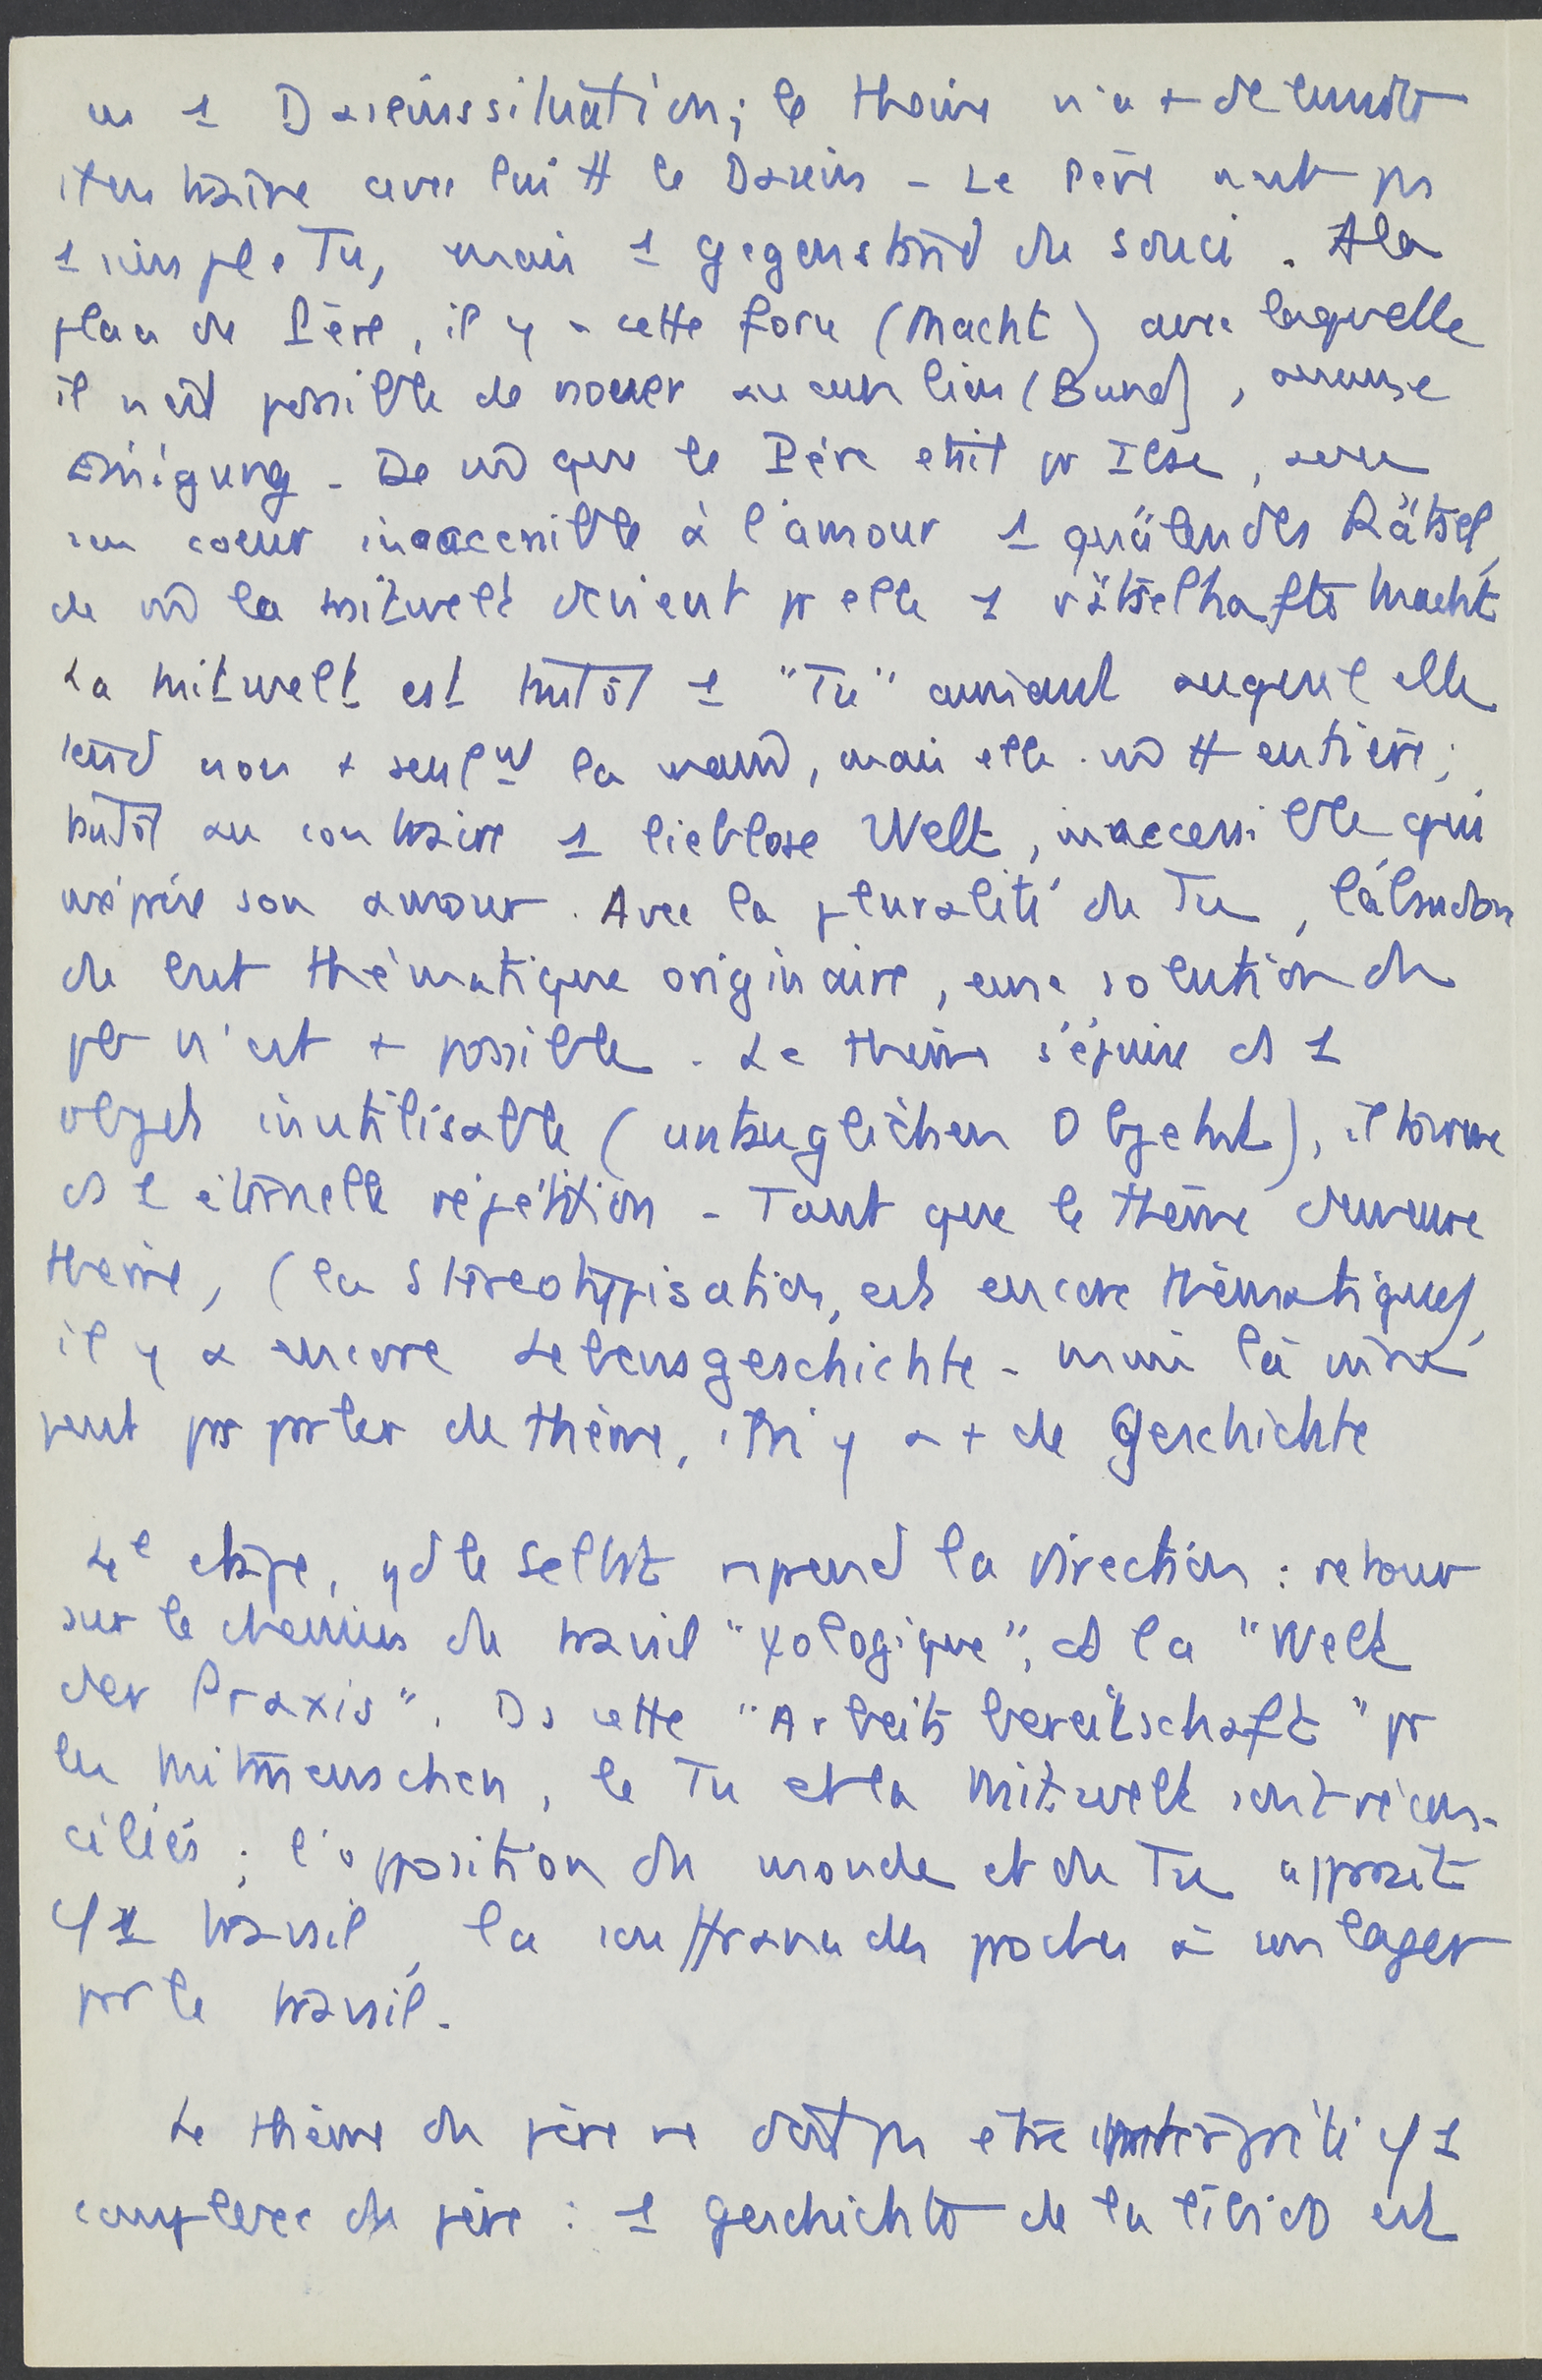 1 Daseinssituation ; le thème n'a + de limite
avec lui # le Dasein - Le Père n'est ps
1 simple Tu, mais 1 gegenstand du souci . A la
place du Père, il y a cette force (Macht) avec laquelle
il n'est possible de nouer aucun lien (Bund),
einigung - De m̂ que le Père etait pr Ilse, avec
son coeur inaccessible à l'amour 1 quälendes Rätsel,
de m̂ la mitwelt devient pr elle 1 rätselhafte Macht
La mitwelt est tutôt 1 "Tu" aimant auquel elle
tend non + seulmt la main, mais elle-m̂ # entière ;
tutôt au contraire 1 lieblose Welt, inaccessible qui
méprise son amour . Avec la pluralité du Tu , l'abandon
du but thématique originaire, une solution du
pb n'est + possible . Le thème s'épuise ds 1
objet inutilisable (untauglichen Objekt), il tourne
ds 1 éternelle répétition - Tant que le thème demeure
thème, (la stéréotypisation, est encore thématique),
il y a encore Lebensgeschichte - mais là où on ne
peut ps parler de thème, il n'y a + de Geschichte
4e etape, qd le Selbst reprend la direction : retour
sur le chemin du travail "ψologique", ds la "Welt
der Praxis". Ds cette "Arbeitsbereitschaft" pr
les mitmenschen, le Tu et la mitwelt sont récon-
ciliés ; l'opposition du monde et du Tu apparaît
cɥ 1 travail, la souffrance des proches à soulager
par le travail.
Le thème du père ne doit ps etre interprété cɥ 1
complexe du père : 1 geschichte de la libido est